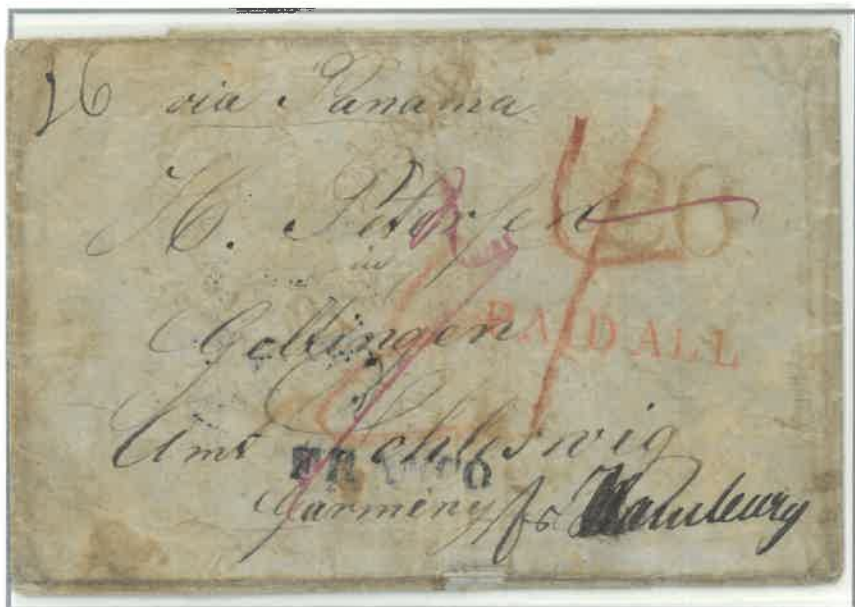 26 via Panama
H. Petersen
in
Goltingen
PAID ALL
Amt Schleswig
FRANCO
Garmeny fr Hamburg